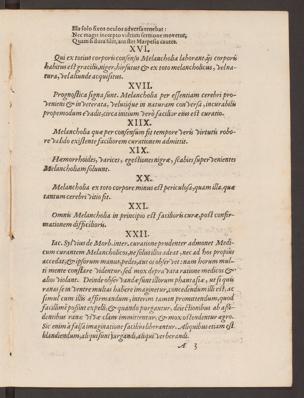 Illa solo fixos oculos adversa tenebat:
Nec magis incepto vultum sermone movetur,
Quàm si dura silex, aut stet Marpesia cautes.
XVI.
Qui ex totius corporis consensu Melancholia laborant, ijs corporis
habitus est gracilis, niger, hirsutus & ex toto melancholicus, vel na-
tura, vel aliunde acquisitus.
XVII.
Prognostica signa sunt. Melancholia per essentiam cerebri pro-
veniens & inveterata, velutique in naturam conversa, incurabilis
propemodum evadit, circa initium verò facilior eius est curatio.
XIIX.
Melancholia quæ per consensum fit tempore veris virtutis robo-
re valido existente facilorem curationem admittit.
XIX.
Hæmorrhoides, varices, egestiones nigræ, scabies supervenientes
Melancholiam solvunt.
XX.
Melancholia ex toto corpore minus est periculosa, quam illa, quæ
tantum cerebri vitio fit.
XXI.
Omnis Melancholia in principio est facilioris curæ, post confir-
mationem difficilioris.
XXII.
Iac. Sylvius de Morb. inter. curatione prudenter admonet Medi-
cum curantem Melancholicos, ne solus illis adest, nec ad hos propius
accedat, & ipsorum manus, pedes, aut os observet: nam horum mul-
ti mente constare videntur, sed mox depravata ratione medicos &
alios violant. Deinde observandæ sunt illorum phantasiæ, ut si quis
ranas se in ventre multas habere imaginetur, concedendum illi est, ac
simul cum illis affirmandum, interim tamen promittendum, quod
facillimè possint expelli, & quando purgantur, deiectionibus ab asti-
dentibus rana viva clam immittentur, & mox ostendentur ægro.
Sic enim à falsa imaginatione facilius liberantur. Aliquibus etiam est
blandiendum, aliqui sunt jurgandi, aliqui verberandi.
A 3